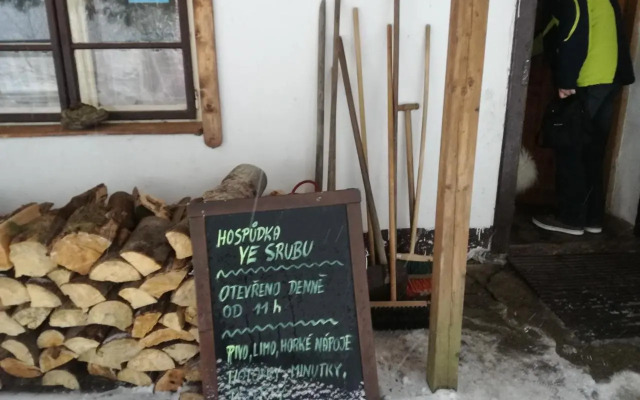 HOSPŮDKA
VE SRUBU
OTEVŘENO DENNĚ
OD 11h
PIVO, LIMO, HORKÉ NÁPOJE
MINUTKY,